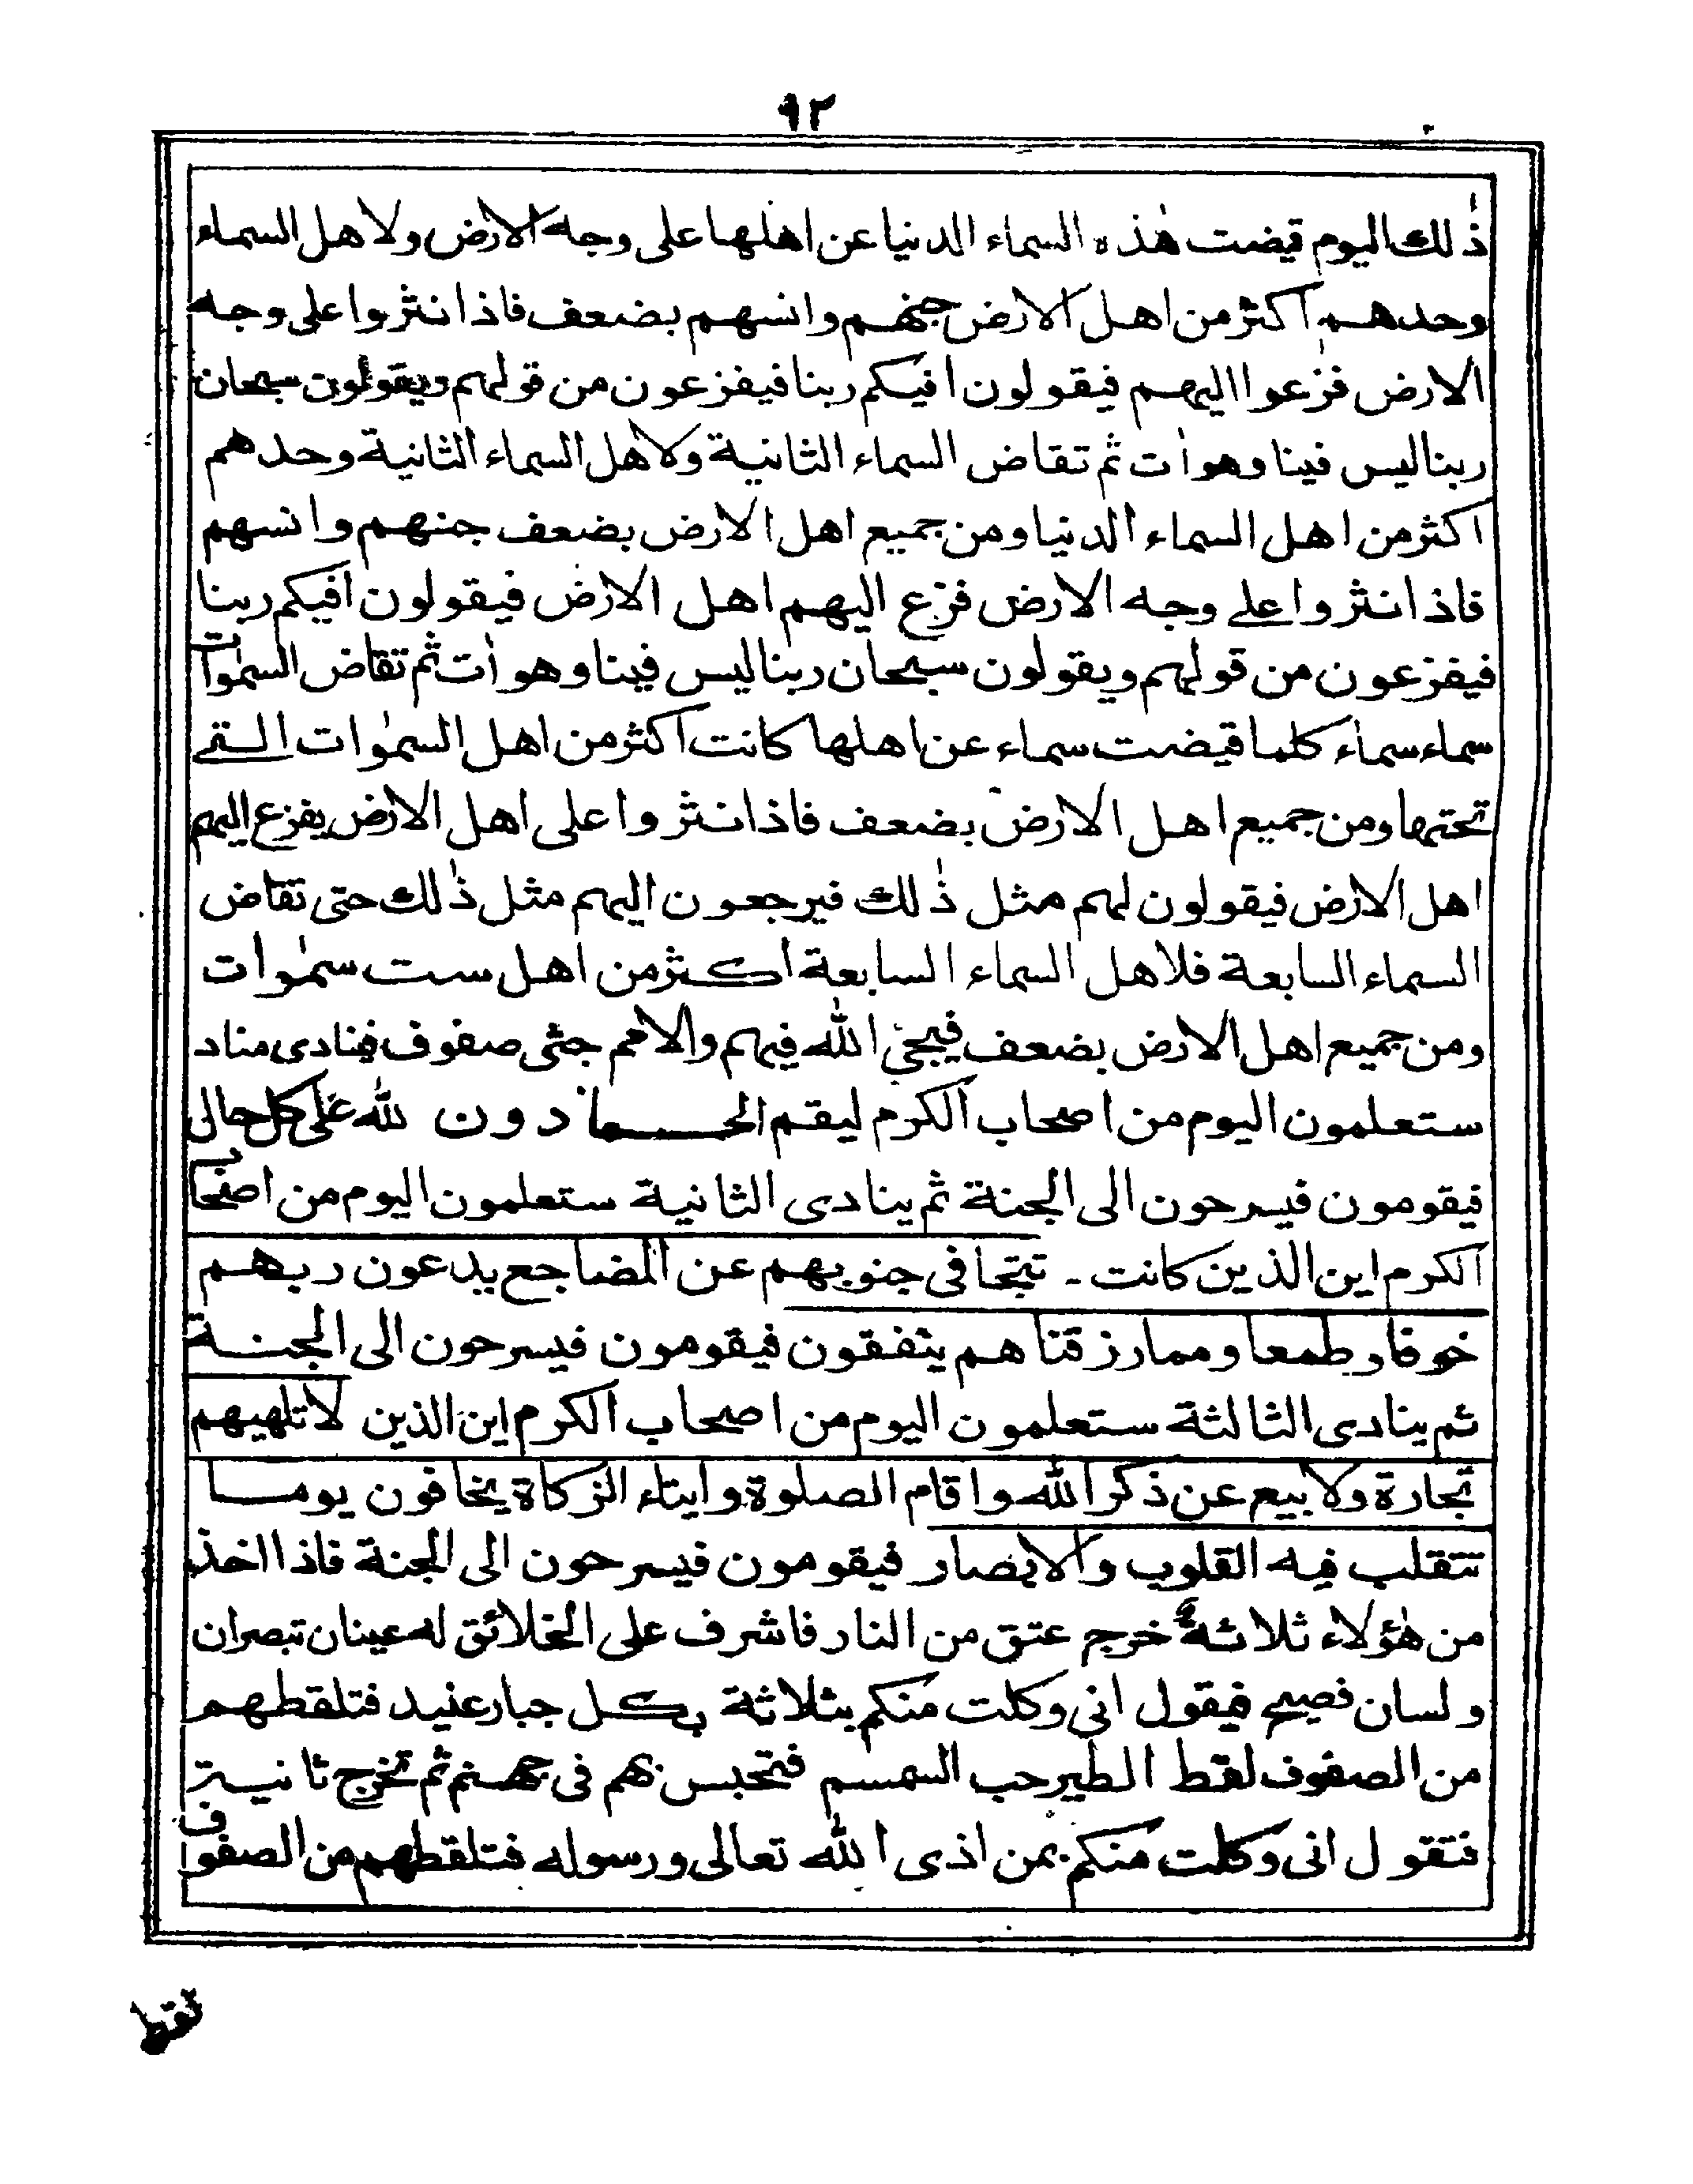 ٩٢
ذٰلك اليوم قيضت هٰذه السماء الدنيا عن اهلها على وجه الارض ولاهل السماء
وحدهم اكثر من اهل الارض جنهم وانسهم بضعف فاذا نثروا على وجه
الارض فزعوا اليهم فيقولون افيكم ربنا فيفزعون من قولهم ويقولون سبحان
ربنا ليس فينا وهو اٰت ثم تقاض السماء الثانية ولاهل السماء الثانية وحدهم
اكثر من اهل السماء الدنيا ومن جميع اهل الارض بضعف جنهم وانسهم
فاذا نثروا علے وجه الارض فزع اليهم اهل الارض فيقولون افيكم ربنا
فيفزعون من قولهم ويقولون سبحان ربنا ليس فينا وهو اٰت ثم تقاض السمٰوات
سماء سماء كلما قيضت سماء عن اهلها كانت اكثر من اهل السمٰوات التے
تحتها ومن جميع اهل الارض بضعف فاذا نثروا على اهل الارض يفزع اليهم
اهل الارض فيقولون لهم مثل ذٰلك فيرجعون اليهم مثل ذٰلك حتى تقاض
السماء السابعة فلاهل السماء السابعة اكثر من اهل ست سمٰوات
ومن جميع اهل الارض بضعف فيجئ الله فيهم والامم جثى صفوف فينادى مناد
ستعلمون اليوم من اصحاب الكرم ليقم الحمادون لله على كل حال
فيقومون فيسرحون الى الجنة ثم ينادى الثانية ستعلمون اليوم من اصحاب
الكرم اين الذين كانت ـ تتجافى جنوبهم عن المضاجع يدعون ربهم
خوفا وطمعا ومما رزقناهم ينفقون فيقومون فيسرحون الى الجنة
ثم ينادى الثالثة ستعلمون اليوم من اصحاب الكرم اين الذين لا تلهيهم
تجارة ولا بيع عن ذكر الله واقام الصلوة وايتاء الزكاة يخافون يوما
تتقلب فيه القلوب والابصار فيقومون فيسرحون الى الجنة فاذا اخذ
من هٰؤلاء ثلاثة خرج عتق من النار فاشرف على الخلائق له عينان تبصران
ولسان فصيح فيقول انى وكلت منكم بثلاثة بكل جبار عنيد فتلقطهم
من الصفوف لقط الطير حب السمسم فتحبس بهم فى جهنم ثم تخرج ثانية
فتقول انى وكلت منكم بمن اذى الله تعالى ورسوله فتلقطهم من الصفوف
لقط